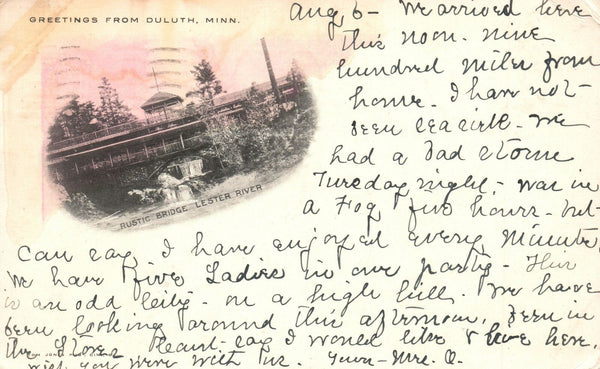 GREETINGS FROM DULUTH, MINN.
Aug 6 - We arrived here
this noon. nine
hundred miles from
home. I have not
been seasick - We
had a bad storm
Tuesday night, - was in
a Fog five hours. but
Can say I have enjoyed every minute.
We have five Ladies in our party - This
is an odd City - on a high hill. We have
been looking around this afternoon, been in
the Stores Cant say I would like to live here,
wish you were with us. Yours - Mrs. O.
RUSTIC BRIDGE, LESTER RIVER